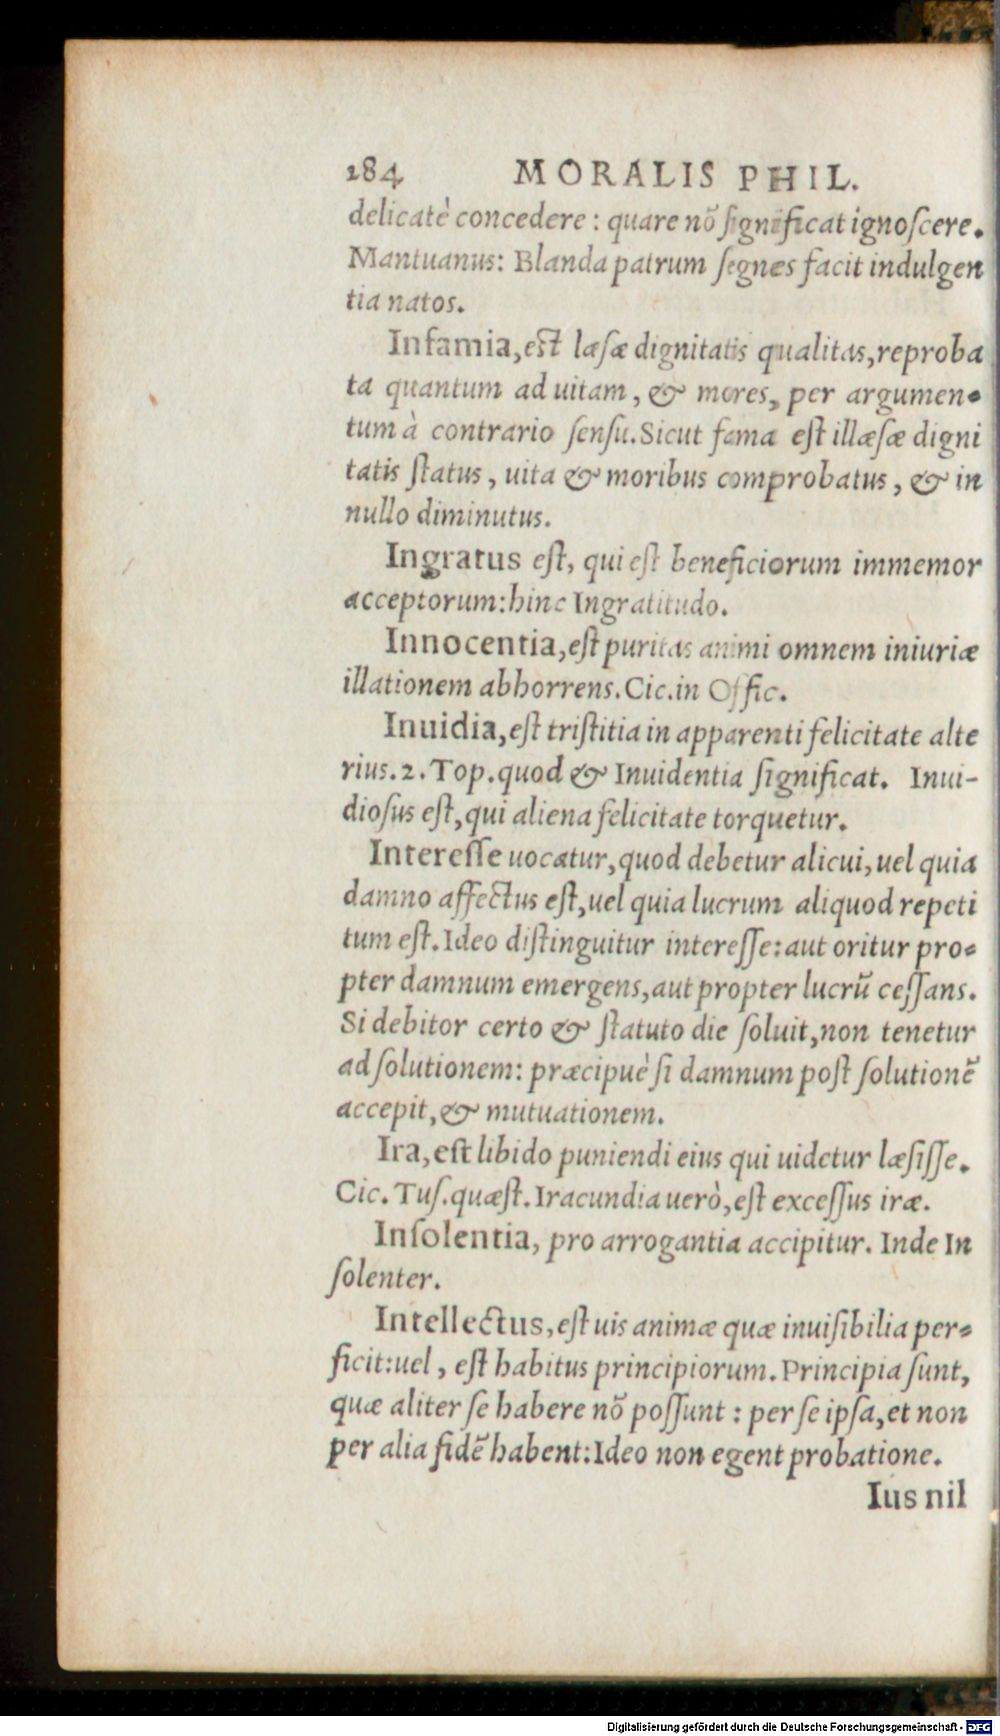 284 MORALIS PHIL.
delicatè concedere : quare nõ ſignificat ignoſcere.
Mantuanus: Blanda patrum ſegnes facit indulgen
tia natos.
Infamia, eſt læſæ dignitatis qualitas, reproba
ta quantum ad uitam, & mores, per argumen-
tum à contrario ſenſu. Sicut fama eſt illæſæ digni
tatis ſtatus, uita & moribus comprobatus, & in
nullo diminutus.
Ingratus eſt, qui eſt beneficiorum immemor
acceptorum: hinc Ingratitudo.
Innocentia, eſt puritas animi omnem iniuriæ
illationem abhorrens. Cic. in Offic.
Inuidia, eſt triſtitia in apparenti felicitate alte
rius. 2. Top. quod & Inuidentia ſignificat. Inui-
dioſus eſt, qui aliena felicitate torquetur.
Intereſſe uocatur, quod debetur alicui, uel quia
damno affectus eſt, uel quia lucrum aliquod repeti
tum eſt. Ideo diſtinguitur intereſſe: aut oritur pro-
pter damnum emergens, aut propter lucrũ ceſſans.
Si debitor certo & ſtatuto die ſoluit, non tenetur
ad ſolutionem: præcipuè ſi damnum poſt ſolutionẽ
accepit, & mutuationem.
Ira, eſt libido puniendi eius qui uidetur læſiſſe.
Cic. Tuſ. quæſt. Iracundia uerò, eſt exceſſus iræ.
Inſolentia, pro arrogantia accipitur. Inde In
ſolenter.
Intellectus, eſt uis animæ quæ inuiſibilia per-
ficit: uel, eſt habitus principiorum. Principia ſunt,
quæ aliter ſe habere nõ poſſunt : per ſe ipſa, et non
per alia fidẽ habent: Ideo non egent probatione.
Ius nil
Digitalisierung gefördert durch die Deutsche Forschungsgemeinschaft - DFG